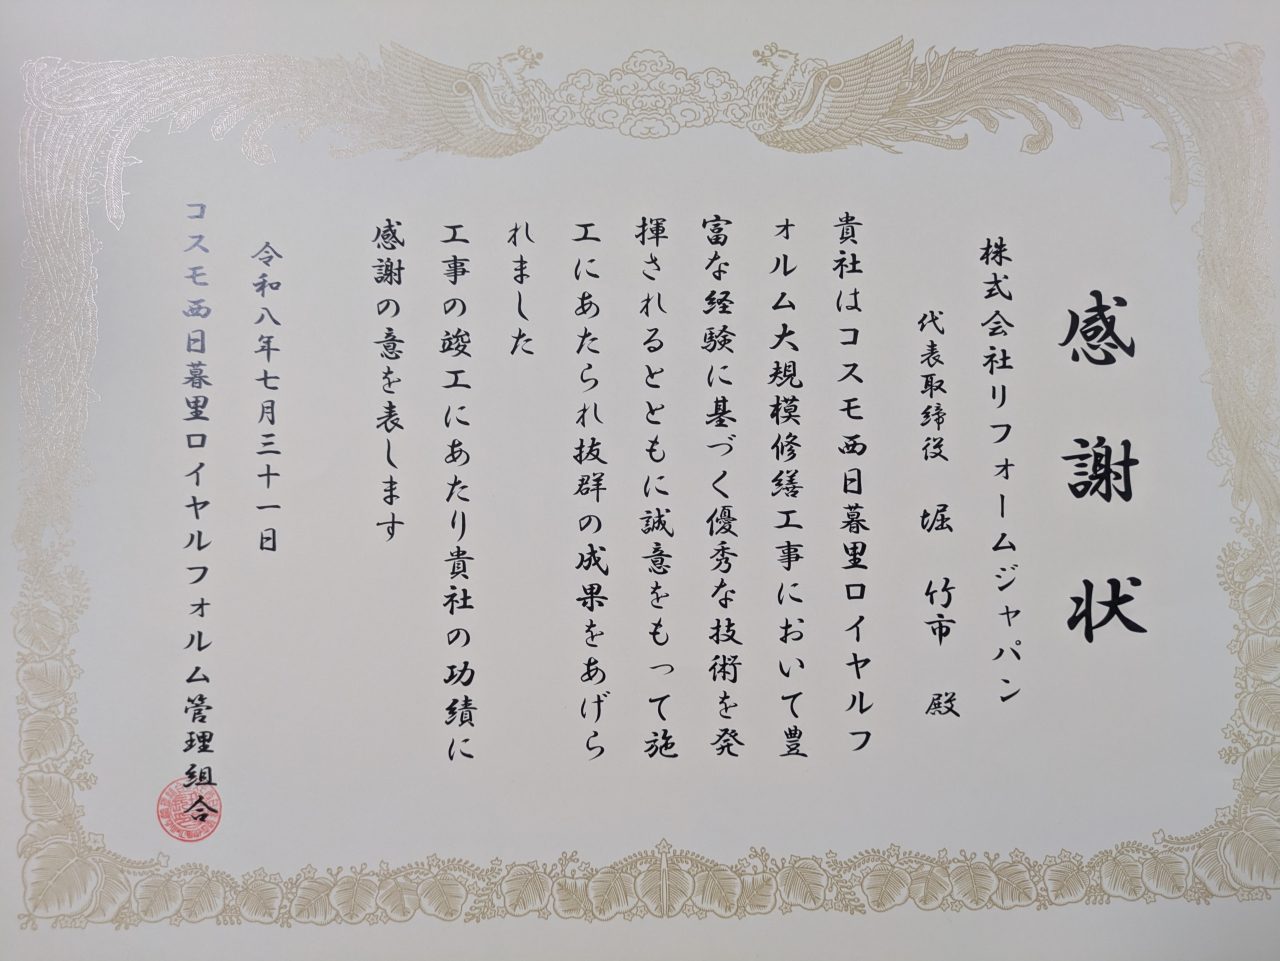 感謝状
株式会社リフォームジャパン
代表取締役 堀 竹市 殿
貴社はコスモ西日暮里ロイヤルフ
ォルム大規模修繕工事において豊
富な経験に基づく優秀な技術を発
揮されるとともに誠意をもって施
工にあたられ抜群の成果をあげら
れました
工事の竣工にあたり貴社の功績に
感謝の意を表します
令和八年七月三十一日
コスモ西日暮里ロイヤルフォルム管理組合